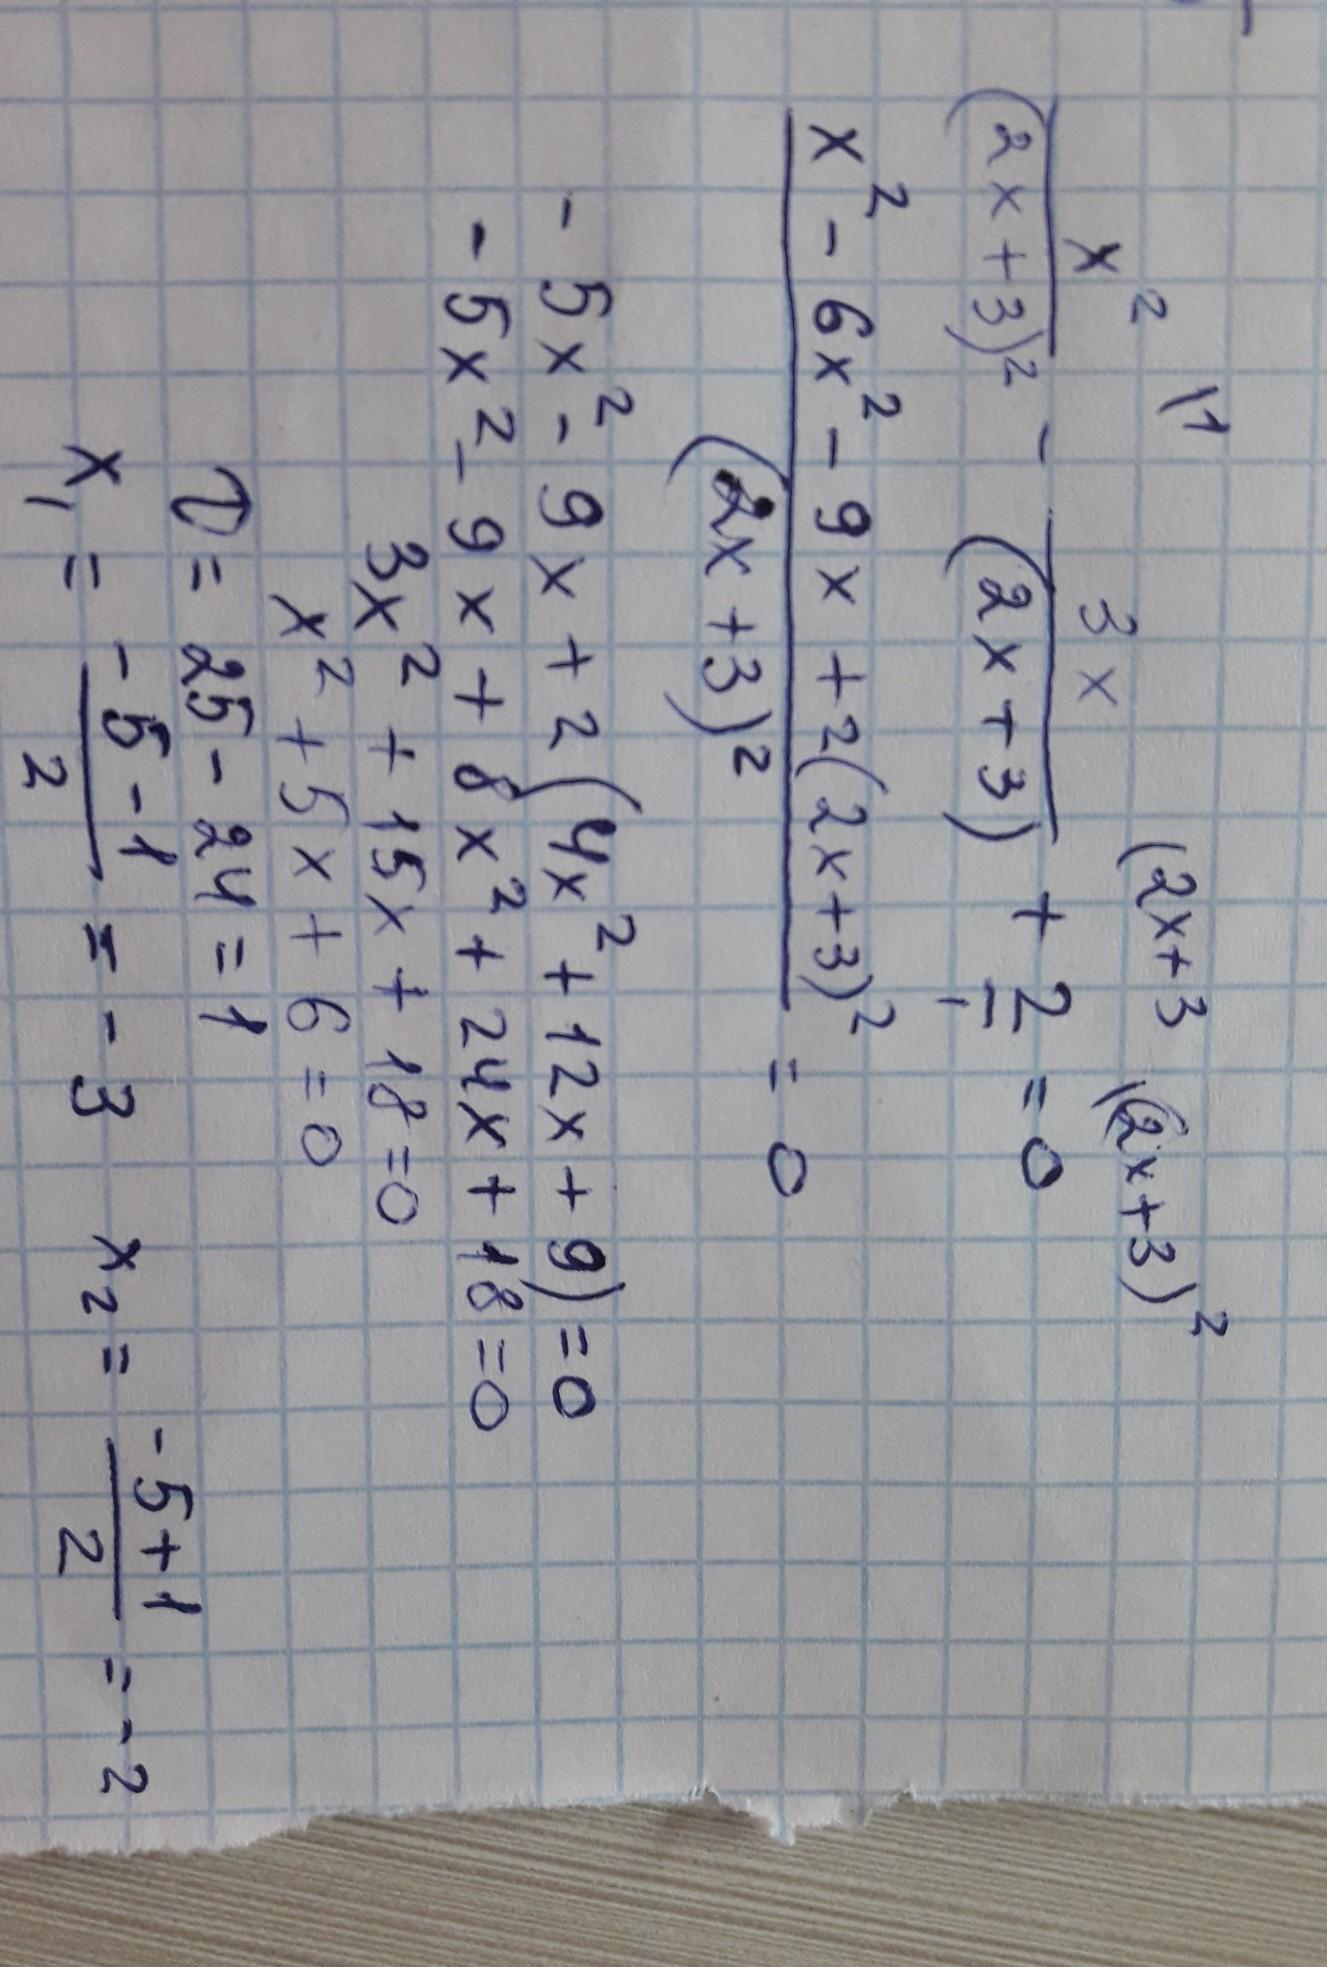 x² \1 3x (2x+3 \(2x+3)²
x²/(2x+3)² - 3x/(2x+3) + 2/1 = 0
(x² - 6x² - 9x + 2(2x+3)²)/(2x+3)² = 0
- 5x² - 9x + 2(4x² + 12x + 9) = 0
- 5x² - 9x + 8x² + 24x + 18 = 0
3x² + 15x + 18 = 0
x² + 5x + 6 = 0
D = 25 - 24 = 1
x₁ = (-5-1)/2 = -3 x₂ = (-5+1)/2 = -2